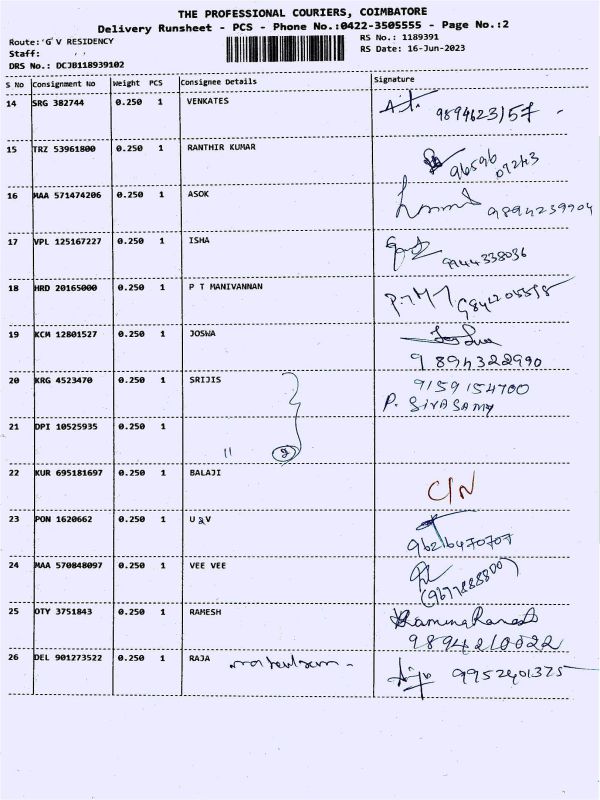 THE PROFESSIONAL COURIERS, COIMBATORE
Delivery Runsheet - PCS - Phone No.:0422-3505555 - Page No.:2
Route:'G' V RESIDENCY RS No.: 1189391
Staff: RS Date: 16-Jun-2023
DRS No.: DCJB118939102
S No Consignment No Weight PCS Consignee Details Signature
14 SRG 382744 0.250 1 VENKATES
9894623157
15 TRZ 53961800 0.250 1 RANTHIR KUMAR
96596
09243
16 MAA 571474206 0.250 1 ASOK
9894239904
17 VPL 125167227 0.250 1 ISHA
9944338036
18 HRD 20165000 0.250 1 P T MANIVANNAN
P.T.M
19 KCM 12801527 0.250 1 JOSWA
9894322990
20 KRG 4523470 0.250 1 SRIJIS 9159154700
P. SIVASAMY
21 DPI 10525935 0.250 1
" 2
22 KUR 695181697 0.250 1 BALAJI
C/N
23 PON 1620662 0.250 1 U & V
96216470707
24 MAA 570848097 0.250 1 VEE VEE
(9677888800)
25 OTY 3751843 0.250 1 RAMESH
9894210022
26 DEL 901273522 0.250 1 RAJA 9952401375